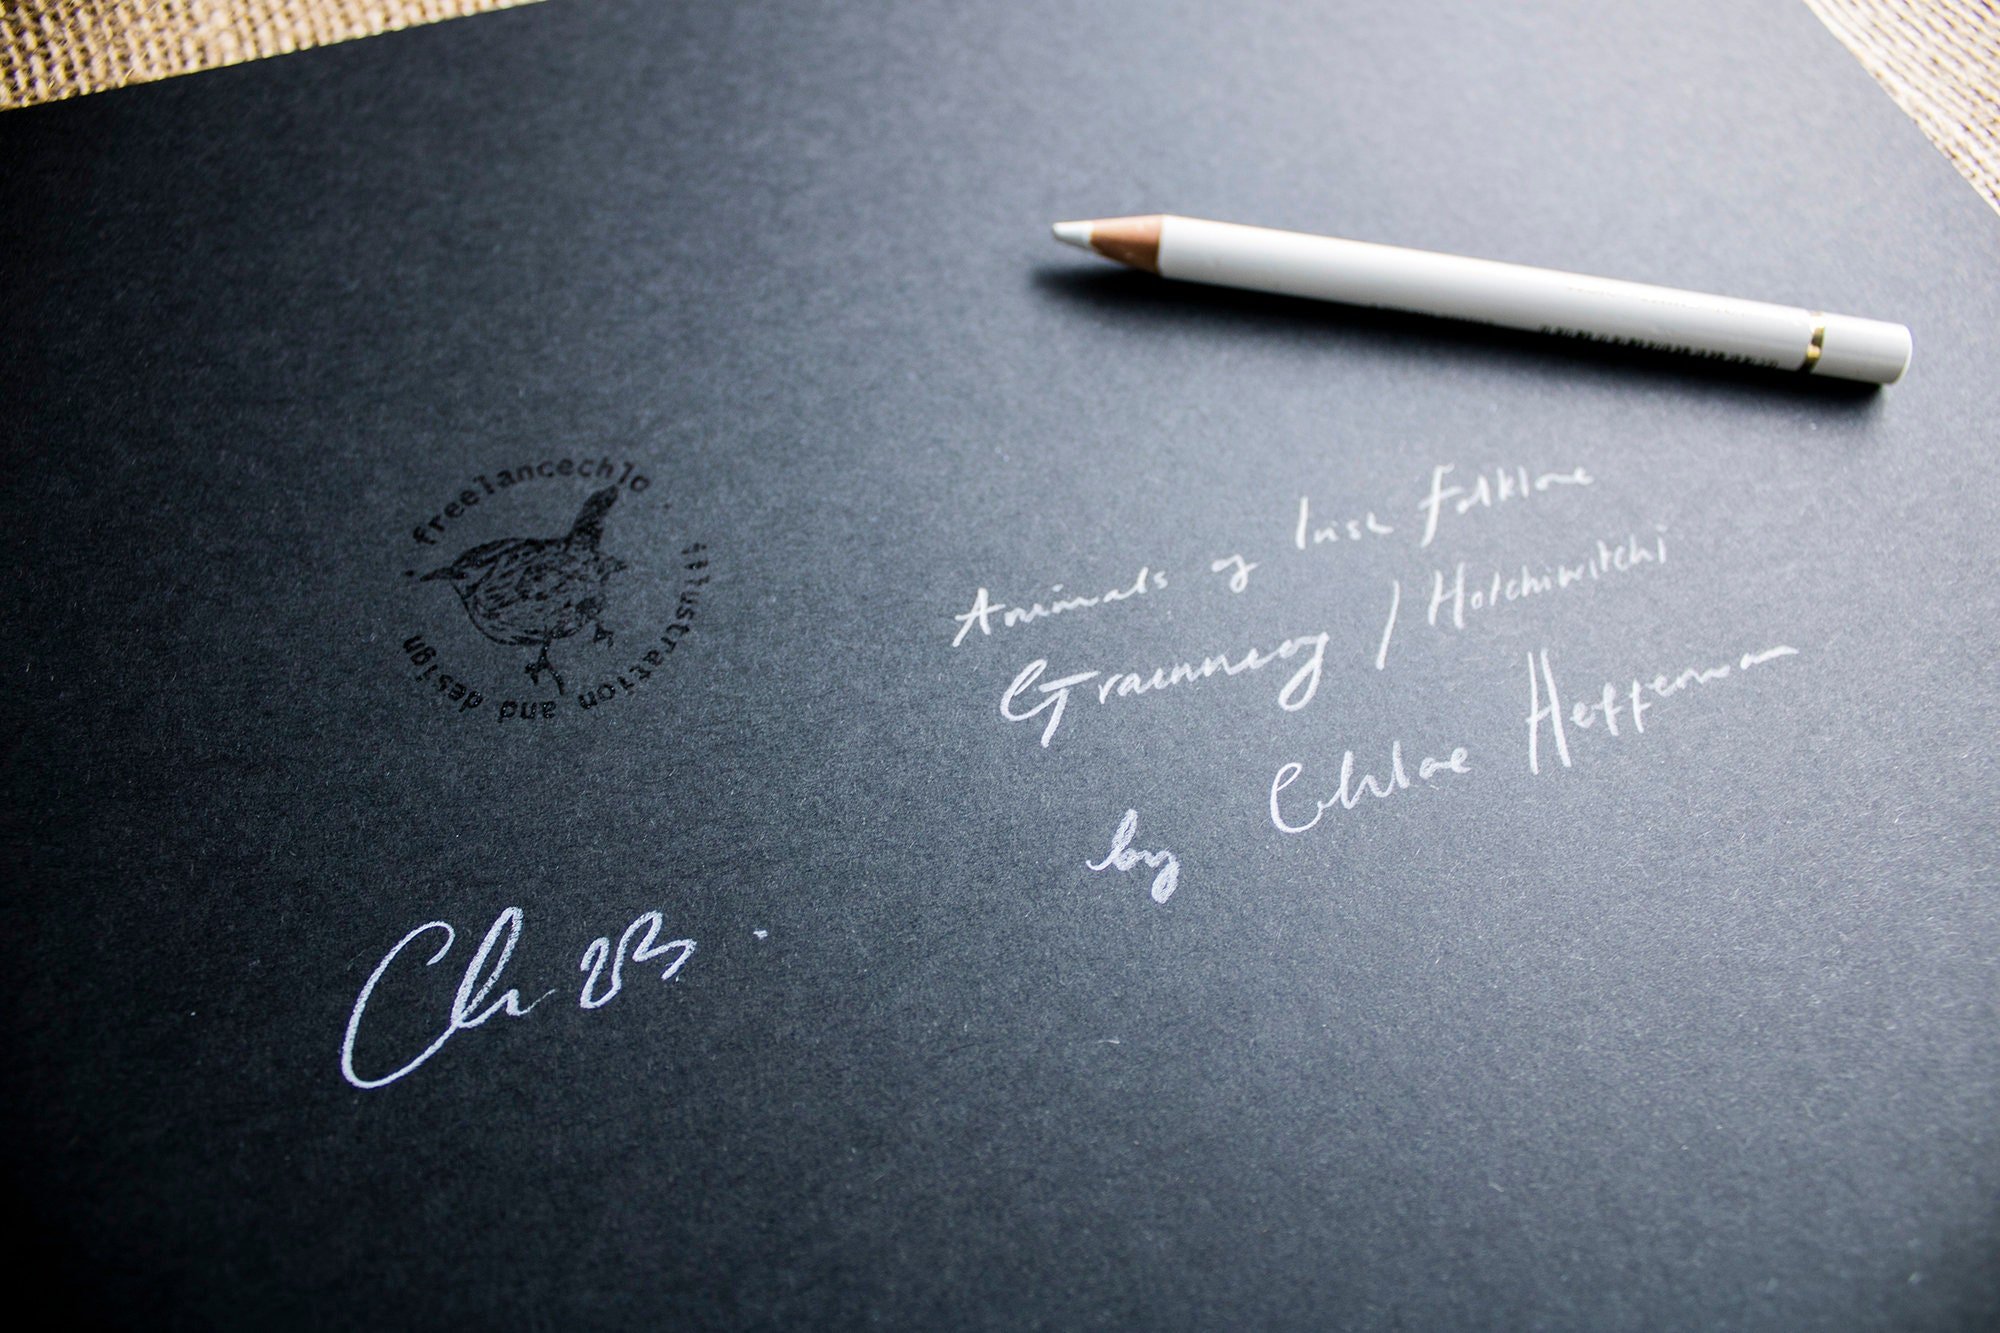 freelancechlo
illustration and design
Animals of Irish Folklore
Grainneog / Hotchiwitchi
by Chloe Heffernan